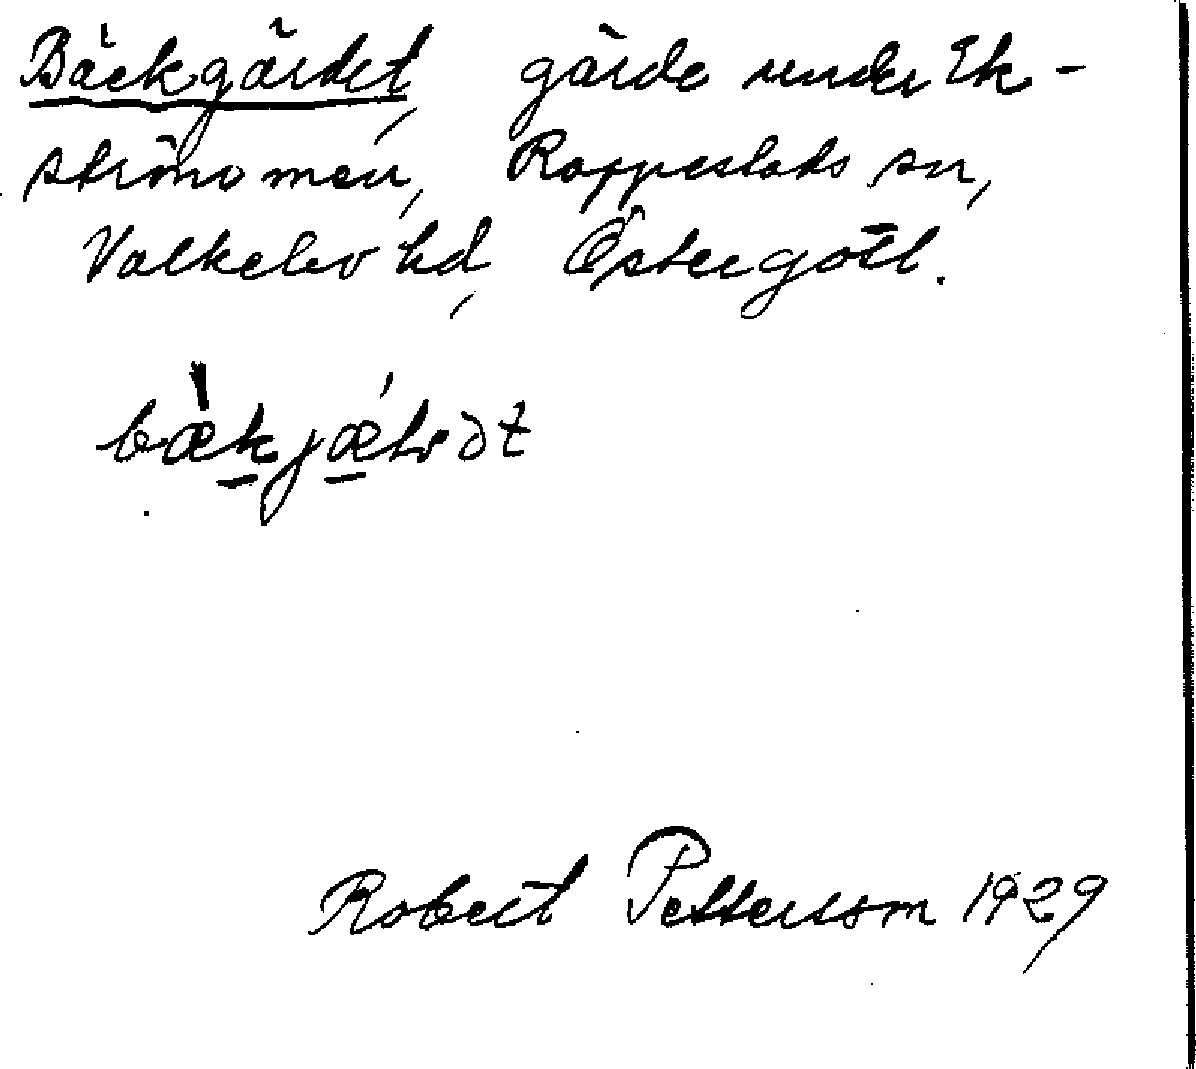 Bäckgärdet, gärde under Ek-
strömmen, Rappestads sn,
Valkebo hd, Östergötl.
Robert Petterson 1929